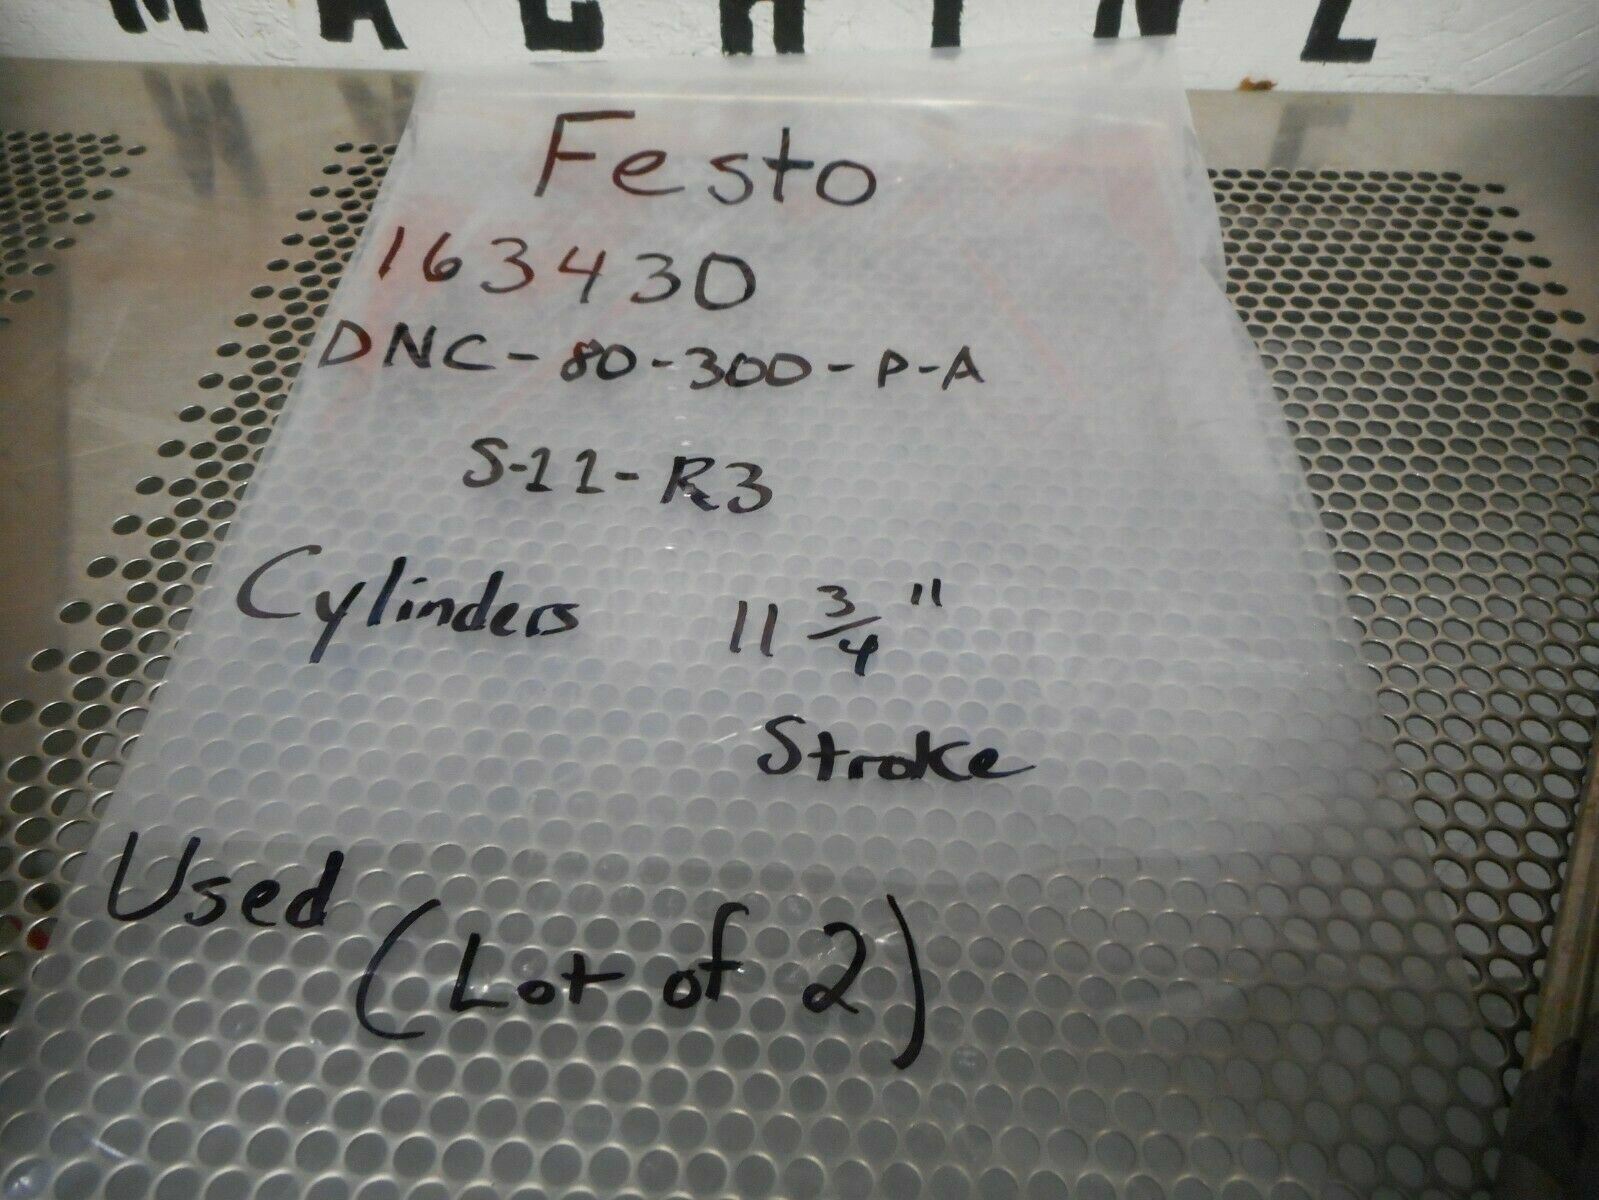 MACHINE
Festo
163430
DNC-80-300-P-A
S-11-R3
Cylinders 11 3/4"
Stroke
Used
(Lot of 2)